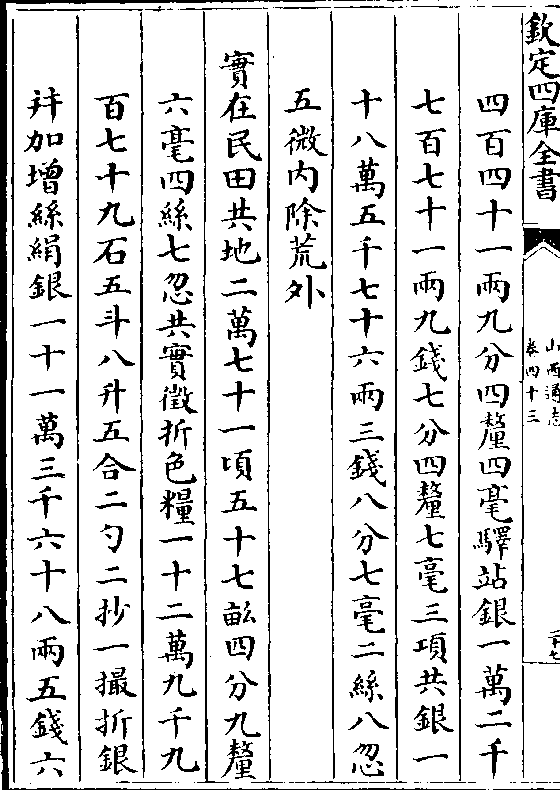 欽定四庫全書
山西通志
卷四十三
四百四十一兩九分四釐四毫驛站銀一萬二千
七百七十一兩九錢七分四釐七毫三項共銀一
十八萬五千七十六兩三錢八分七毫二絲八忽
五微内除荒外
實在民田共地二萬七十一項五十七畝四分九釐
六毫四絲七忽共實徵折色糧一十二萬九千九
百七十九石五斗八升五合二勺二抄一撮折銀
幷加增絲絹銀一十一萬三千六十八兩五錢六